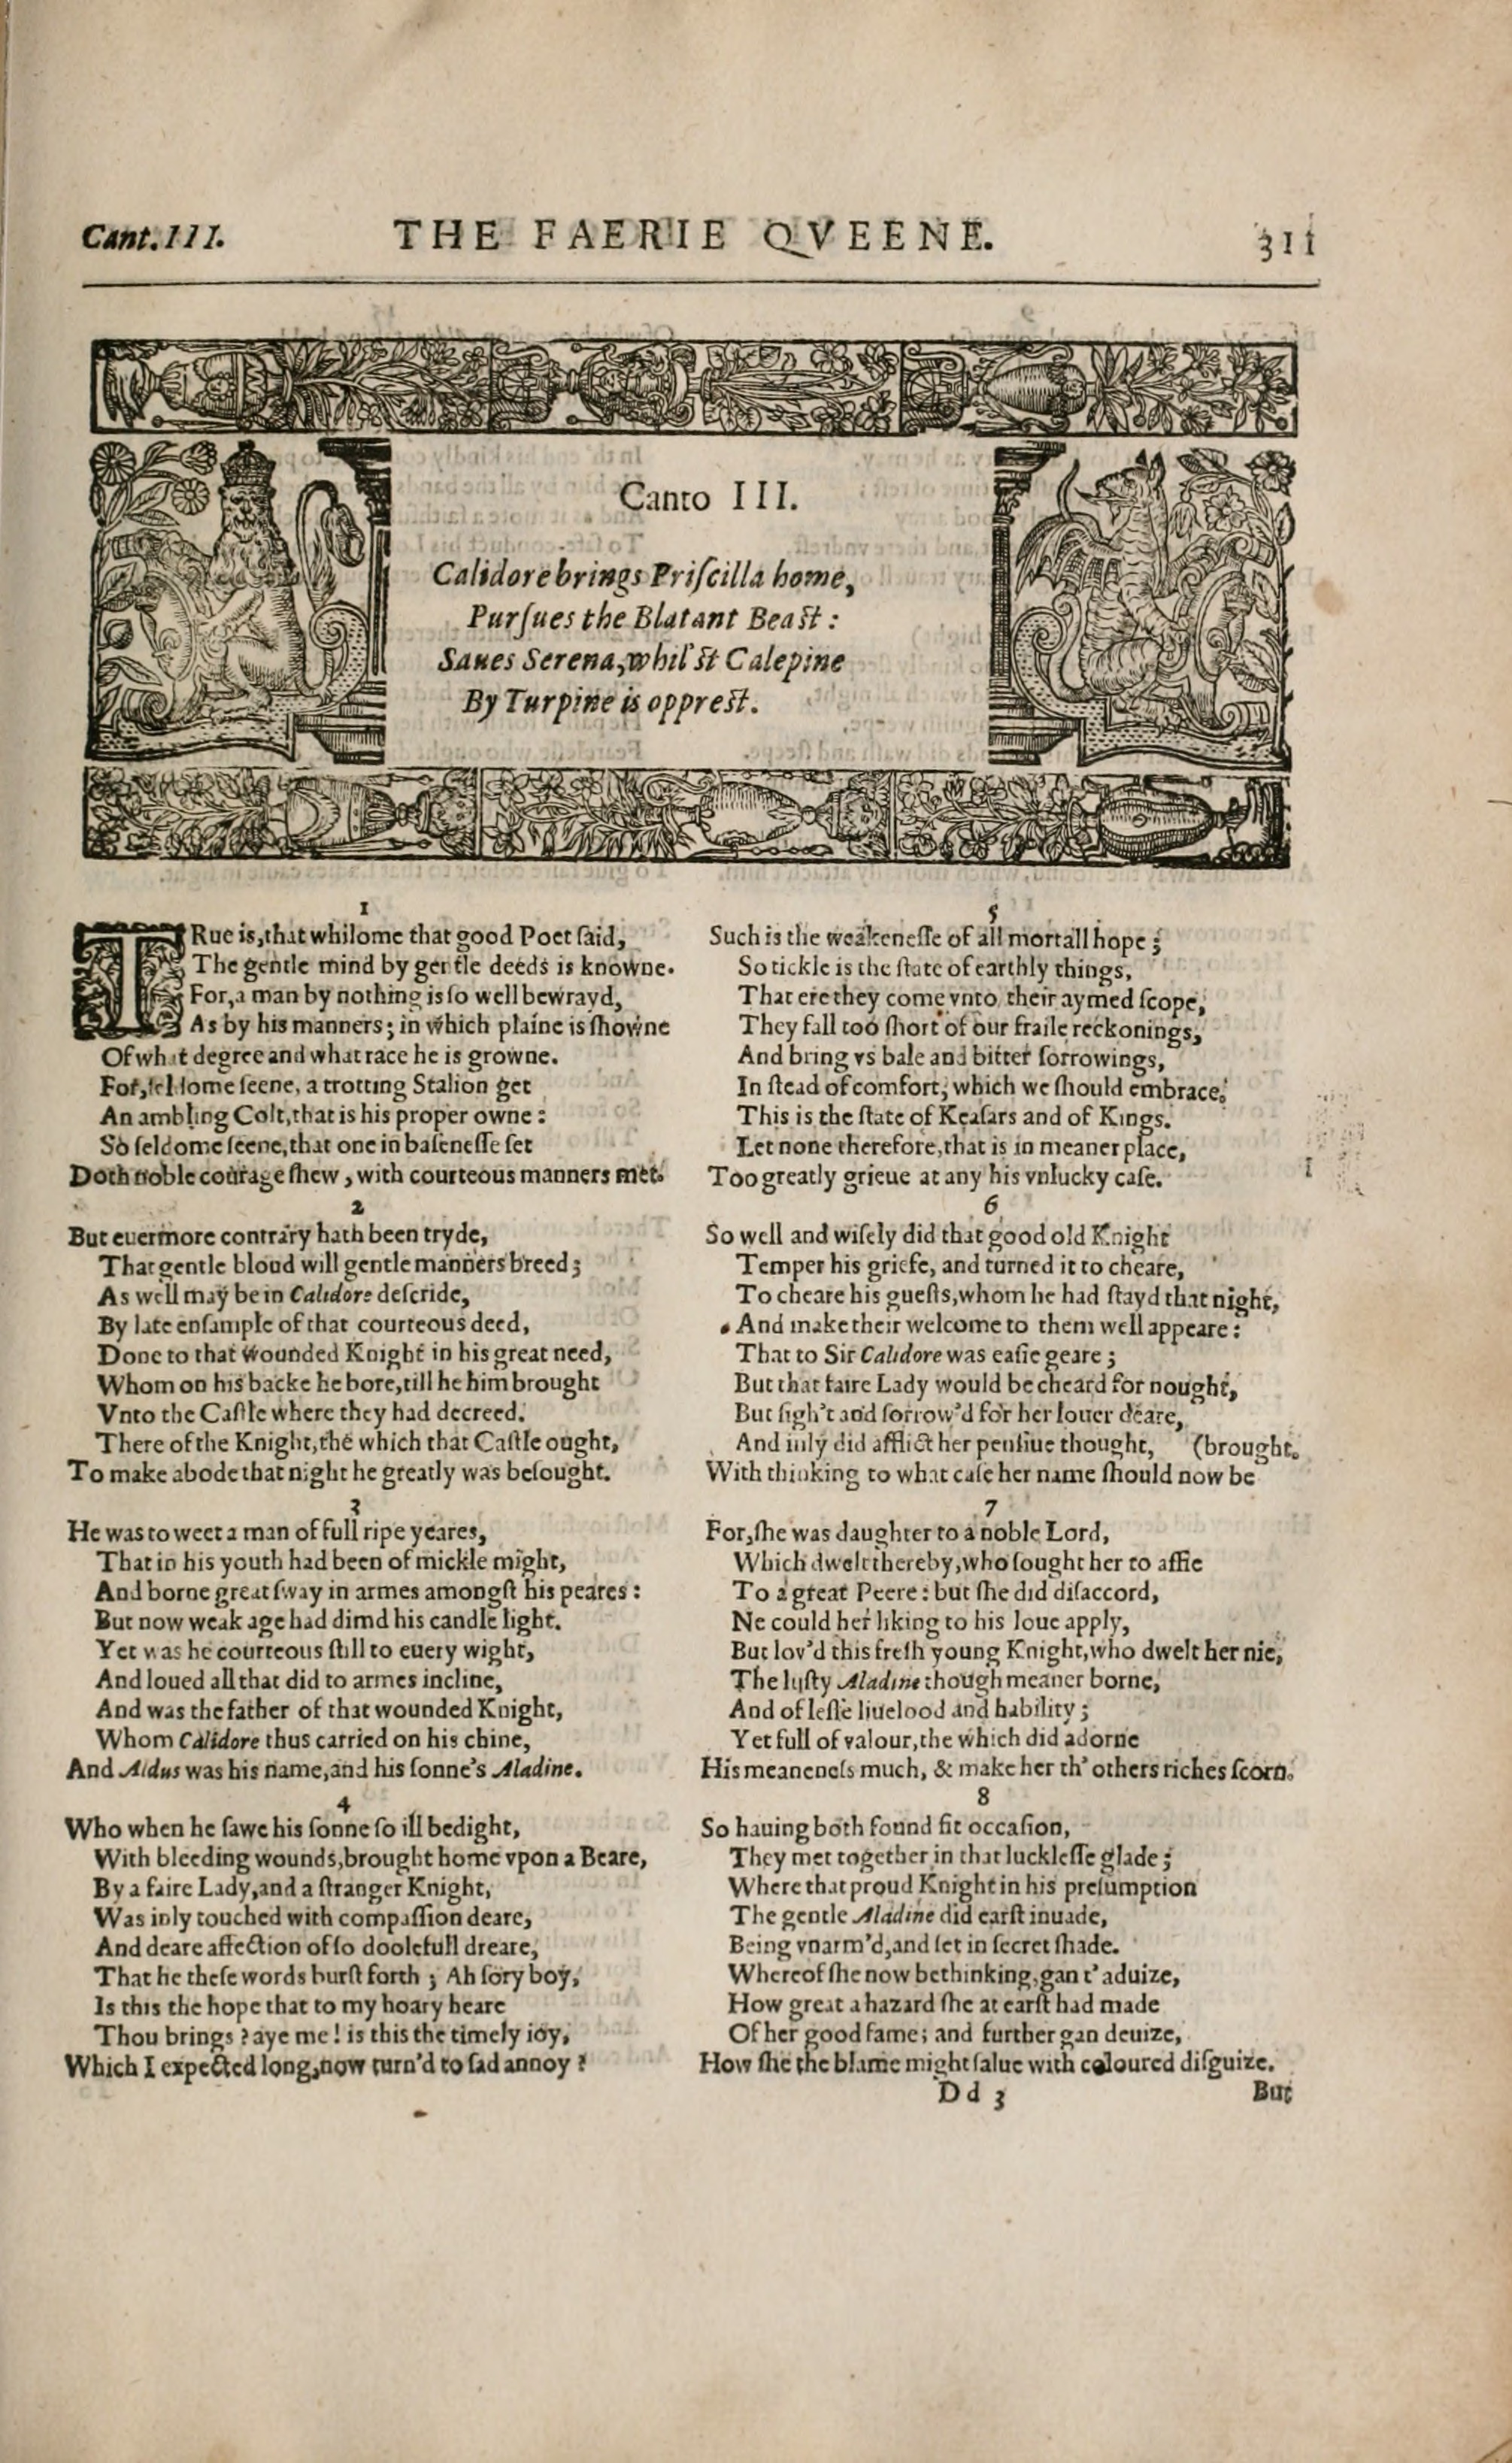 Cant. III. THE FAERIE QVEENE. 311
Canto III.
Calidore brings Priſcilla home,
Purſues the Blatant Beaſt:
Saues Serena, whil'ſt Calepine
By Turpine is oppreſt.
1
TRue is, that whilome that good Poet ſaid,
The gentle mind by gentle deeds is knowne.
For, a man by nothing is ſo well bewrayd,
As by his manners; in which plaine is ſhowne
Of what degree and what race he is growne.
For, ſeldome ſeene, a trotting Stalion get
An ambling Colt, that is his proper owne:
So ſeldome ſeene, that one in baſeneſſe ſet
Doth noble courage ſhew, with courteous manners met.
2
But euermore contrary hath been tryde,
That gentle bloud will gentle manners breed;
As well may be in Calidore deſcride,
By late enſample of that courteous deed,
Done to that wounded Knight in his great need,
Whom on his backe he bore, till he him brought
Vnto the Caſtle where they had decreed.
There of the Knight, the which that Caſtle ought,
To make abode that night he greatly was beſought.
3
He was to weet a man of full ripe yeares,
That in his youth had been of mickle might,
And borne great ſway in armes amongſt his peares:
But now weak age had dimd his candle light.
Yet was he courteous ſtill to euery wight,
And loued all that did to armes incline,
And was the father of that wounded Knight,
Whom Calidore thus carried on his chine,
And Aldus was his name, and his ſonne's Aladine.
4
Who when he ſawe his ſonne ſo ill bedight,
With bleeding wounds, brought home vpon a Beare,
By a faire Lady, and a ſtranger Knight,
Was inly touched with compaſſion deare,
And deare affection of ſo doolefull dreare,
That he theſe words burſt forth; Ah ſory boy,
Is this the hope that to my hoary heare
Thou brings? aye me! is this the timely ioy,
Which I expected long, now turn'd to ſad annoy?
5
Such is the weakeneſſe of all mortall hope;
So tickle is the ſtate of earthly things,
That ere they come vnto their aymed ſcope,
They fall too ſhort of our fraile reckonings,
And bring vs bale and bitter ſorrowings,
In ſtead of comfort, which we ſhould embrace:
This is the ſtate of Keaſars and of Kings.
Let none therefore, that is in meaner place,
Too greatly grieue at any his vnlucky caſe.
6
So well and wiſely did that good old Knight
Temper his griefe, and turned it to cheare,
To cheare his gueſts, whom he had ſtayd that night,
And make their welcome to them well appeare:
That to Sir Calidore was eaſie geare;
But that faire Lady would be cheard for nought,
But ſigh't and ſorrow'd for her louer deare,
And inly did afflict her penſiue thought, (brought.
With thinking to what caſe her name ſhould now be
7
For, ſhe was daughter to a noble Lord,
Which dwelt thereby, who ſought her to affie
To a great Peere: but ſhe did diſaccord,
Ne could her liking to his loue apply,
But lov'd this freſh young Knight, who dwelt her nie,
The luſty Aladine though meaner borne,
And of leſſe liuelood and hability;
Yet full of valour, the which did adorne
His meaneneſs much, & make her th' others riches ſcorn.
8
So hauing both found fit occaſion,
They met together in that luckleſſe glade;
Where that proud Knight in his preſumption
The gentle Aladine did earſt inuade,
Being vnarm'd, and ſet in ſecret ſhade.
Whereof ſhe now bethinking, gan t' aduize,
How great a hazard ſhe at earſt had made
Of her good fame; and further gan deuize,
How ſhe the blame might ſalue with coloured diſguize.
Dd 3 But